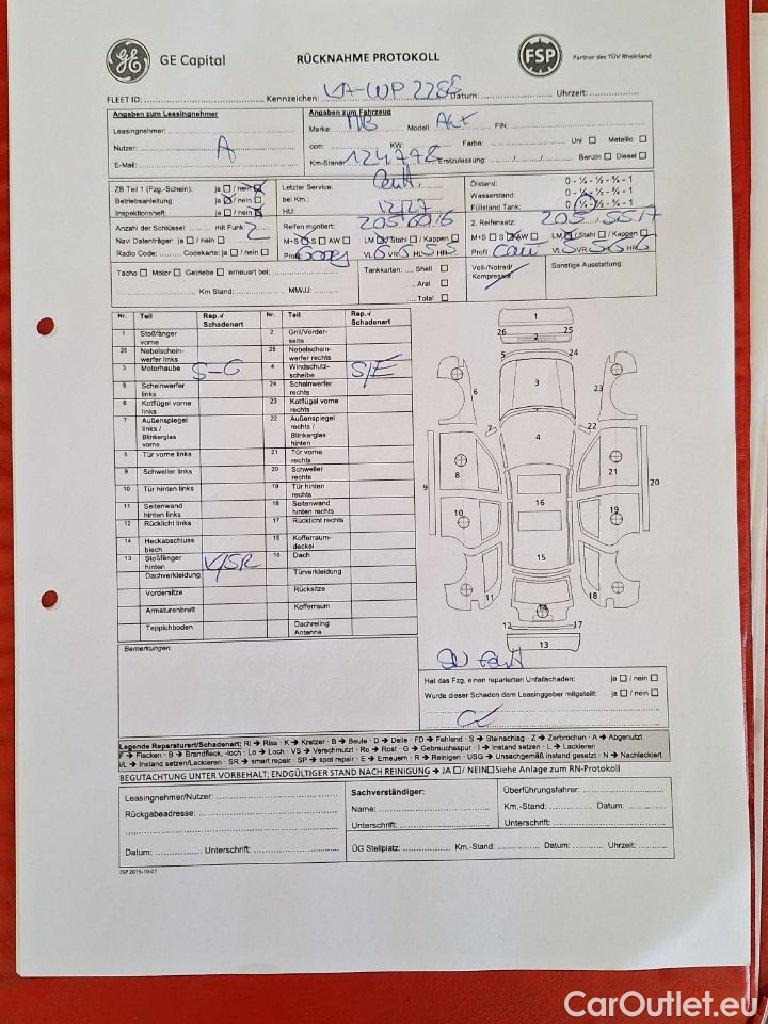 GE Capital RÜCKNAHME PROTOKOLL FSP Partner des TÜV Rheinland
FLEET ID: Kennzeichen: Datum: Uhrzeit:
Angaben zum Leasingnehmer Angaben zum Fahrzeug
Leasingnehmer: Marke: MB Modell: FIN:
Nutzer: A ccm: KW: Farbe: Uni Metallic
E-Mail: Km-Stand: 124778 Erstzulassung: / / Benzin Diesel
ZB Teil 1 (Fzg.-Schein): ja / nein Letzter Service: Ölstand: 0 - ¼ - ½ - ¾ - 1
Betriebsanleitung: ja / nein bei Km.: Wasserstand: 0 - ¼ - ½ - ¾ - 1
Inspektionsheft: ja / nein HU: 12/27 Füllstand Tank: 0 - ¼ - ½ - ¾ - 1
Anzahl der Schlüssel: mit Funk: 2 Reifen montiert: 205 60 16 2. Reifensatz: 205 55 17
Navi Datenträger: ja / nein M+S S AW LM / Stahl / Kappen M+S S AW LM / Stahl / Kappen
Radio Code: Codekarte: ja / nein Profil VL 6 VR 6 HL 5 HR 5 Profil VL 5 VR 5 HL 6 HR 6
Tacho Motor Getriebe erneuert bei: Tankkarten: Shell Voll-/Notrad/ Sonstige Ausstattung:
Kompressor
Aral
Km Stand: MM/JJ: Total
Nr. Teil Rep.-/ Schadenart Nr. Teil Rep.-/ Schadenart
1 Stoßfänger vorne 2 Grill/Vorderseite
26 Nebelscheinwerfer links 25 Nebelscheinwerfer rechts
3 Motorhaube S-G 4 Windschutzscheibe S/E
5 Scheinwerfer links 24 Scheinwerfer rechts
6 Kotflügel vorne links 23 Kotflügel vorne rechts
7 Außenspiegel links / Blinkerglas vorne 22 Außenspiegel rechts / Blinkerglas hinten
8 Tür vorne links 21 Tür vorne rechts
9 Schweller links 20 Schweller rechts
10 Tür hinten links 19 Tür hinten rechts
11 Seitenwand hinten links 18 Seitenwand hinten rechts
12 Rücklicht links 17 Rücklicht rechts
14 Heckabschlussblech 15 Kofferraumdeckel
13 Stoßfänger hinten V/SR 16 Dach
Dachverkleidung Türverkleidung
Vordersitze Rücksitze
Armaturenbrett Kofferraum
Teppichboden Dachreling Antenne
1
26 2 25
5 24
6 3 23
7 4 22
8 21
9 20
10 16 19
15
11 18
14
12 17
13
Bemerkungen:
Hat das Fzg. einen reparierten Unfallschaden: ja / nein
Wurde dieser Schaden dem Leasinggeber mitgeteilt: ja / nein
Legende Reparaturart/Schadenart: RI → Riss · K → Kratzer · B → Beule · D → Delle · FD → Fehlend · S → Steinschlag · Z → Zerbrochen · A → Abgenutzt
F → Flecken · B → Brandfleck, -loch · Lo → Loch · VS → Verschmutzt · Ro → Rost · G → Gebrauchsspur · I → Instand setzen · L → Lackieren
I/L → Instand setzen/Lackieren · SR → smart repair · SP → spot repair · E → Erneuern · R → Reinigen · USG → Unsachgemäß instand gesetzt · N → Nachlackiert
BEGUTACHTUNG UNTER VORBEHALT; ENDGÜLTIGER STAND NACH REINIGUNG → JA / NEIN Siehe Anlage zum RN-Protokoll
Leasingnehmer/Nutzer: Sachverständiger: Überführungsfahrer:
Rückgabeadresse: Name: Km.-Stand: Datum:
Unterschrift: Unterschrift:
Datum: Unterschrift: ÜG Stellplatz: Km.-Stand: Datum: Uhrzeit:
FSP 2015-10-07
CarOutlet.eu